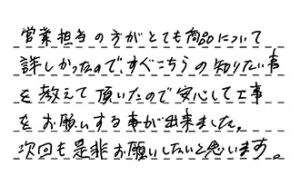 営業担当の方がとても商品について
詳しかったので、すぐこちらの知りたい事
を教えて頂いたので安心して工事
をお願いする事が出来ました。
次回も是非お願いしたいと思います。